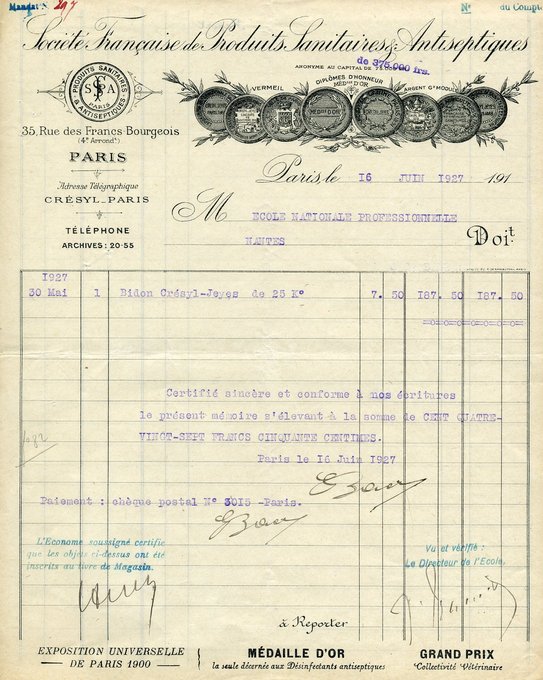 Mandat N° 297
N° du Compte
Société Française de Produits Sanitaires & Antiseptiques
ANONYME AU CAPITAL DE
de 375.000 frs.
PRODUITS SANITAIRES
& ANTISEPTIQUES
PARIS
SFPA
VERMEIL
DIPLÔMES D'HONNEUR
MÉDles D'OR
ARGENT Gd MODULE
MÉDles D'OR
35, Rue des Francs-Bourgeois
(4e Arrondt)
PARIS
Adresse Télégraphique
CRÉSYL_PARIS
TÉLÉPHONE
ARCHIVES: 20-55
Paris, le 16 JUIN 1927 191
M ECOLE NATIONALE PROFESSIONNELLE
NANTES Doit
1927
30 Mai 1 Bidon Crésyl-Jeyes de 25 K° 7. 50 187. 50 187. 50
Certifié sincère et conforme à nos écritures
le présent mémoire s'élevant à la somme de CENT QUATRE-
VINGT-SEPT FRANCS CINQUANTE CENTIMES.
Paris le 16 Juin 1927
Paiement : chèque postal N° 3015 -Paris.
L'Econome soussigné certifie
que les objets ci-dessus ont été
inscrits au livre de Magasin.
Vu et vérifié :
Le Directeur de l'Ecole,
à Reporter
EXPOSITION UNIVERSELLE
DE PARIS 1900
MÉDAILLE D'OR
la seule décernée aux Désinfectants antiseptiques
GRAND PRIX
Collectivité Vétérinaire